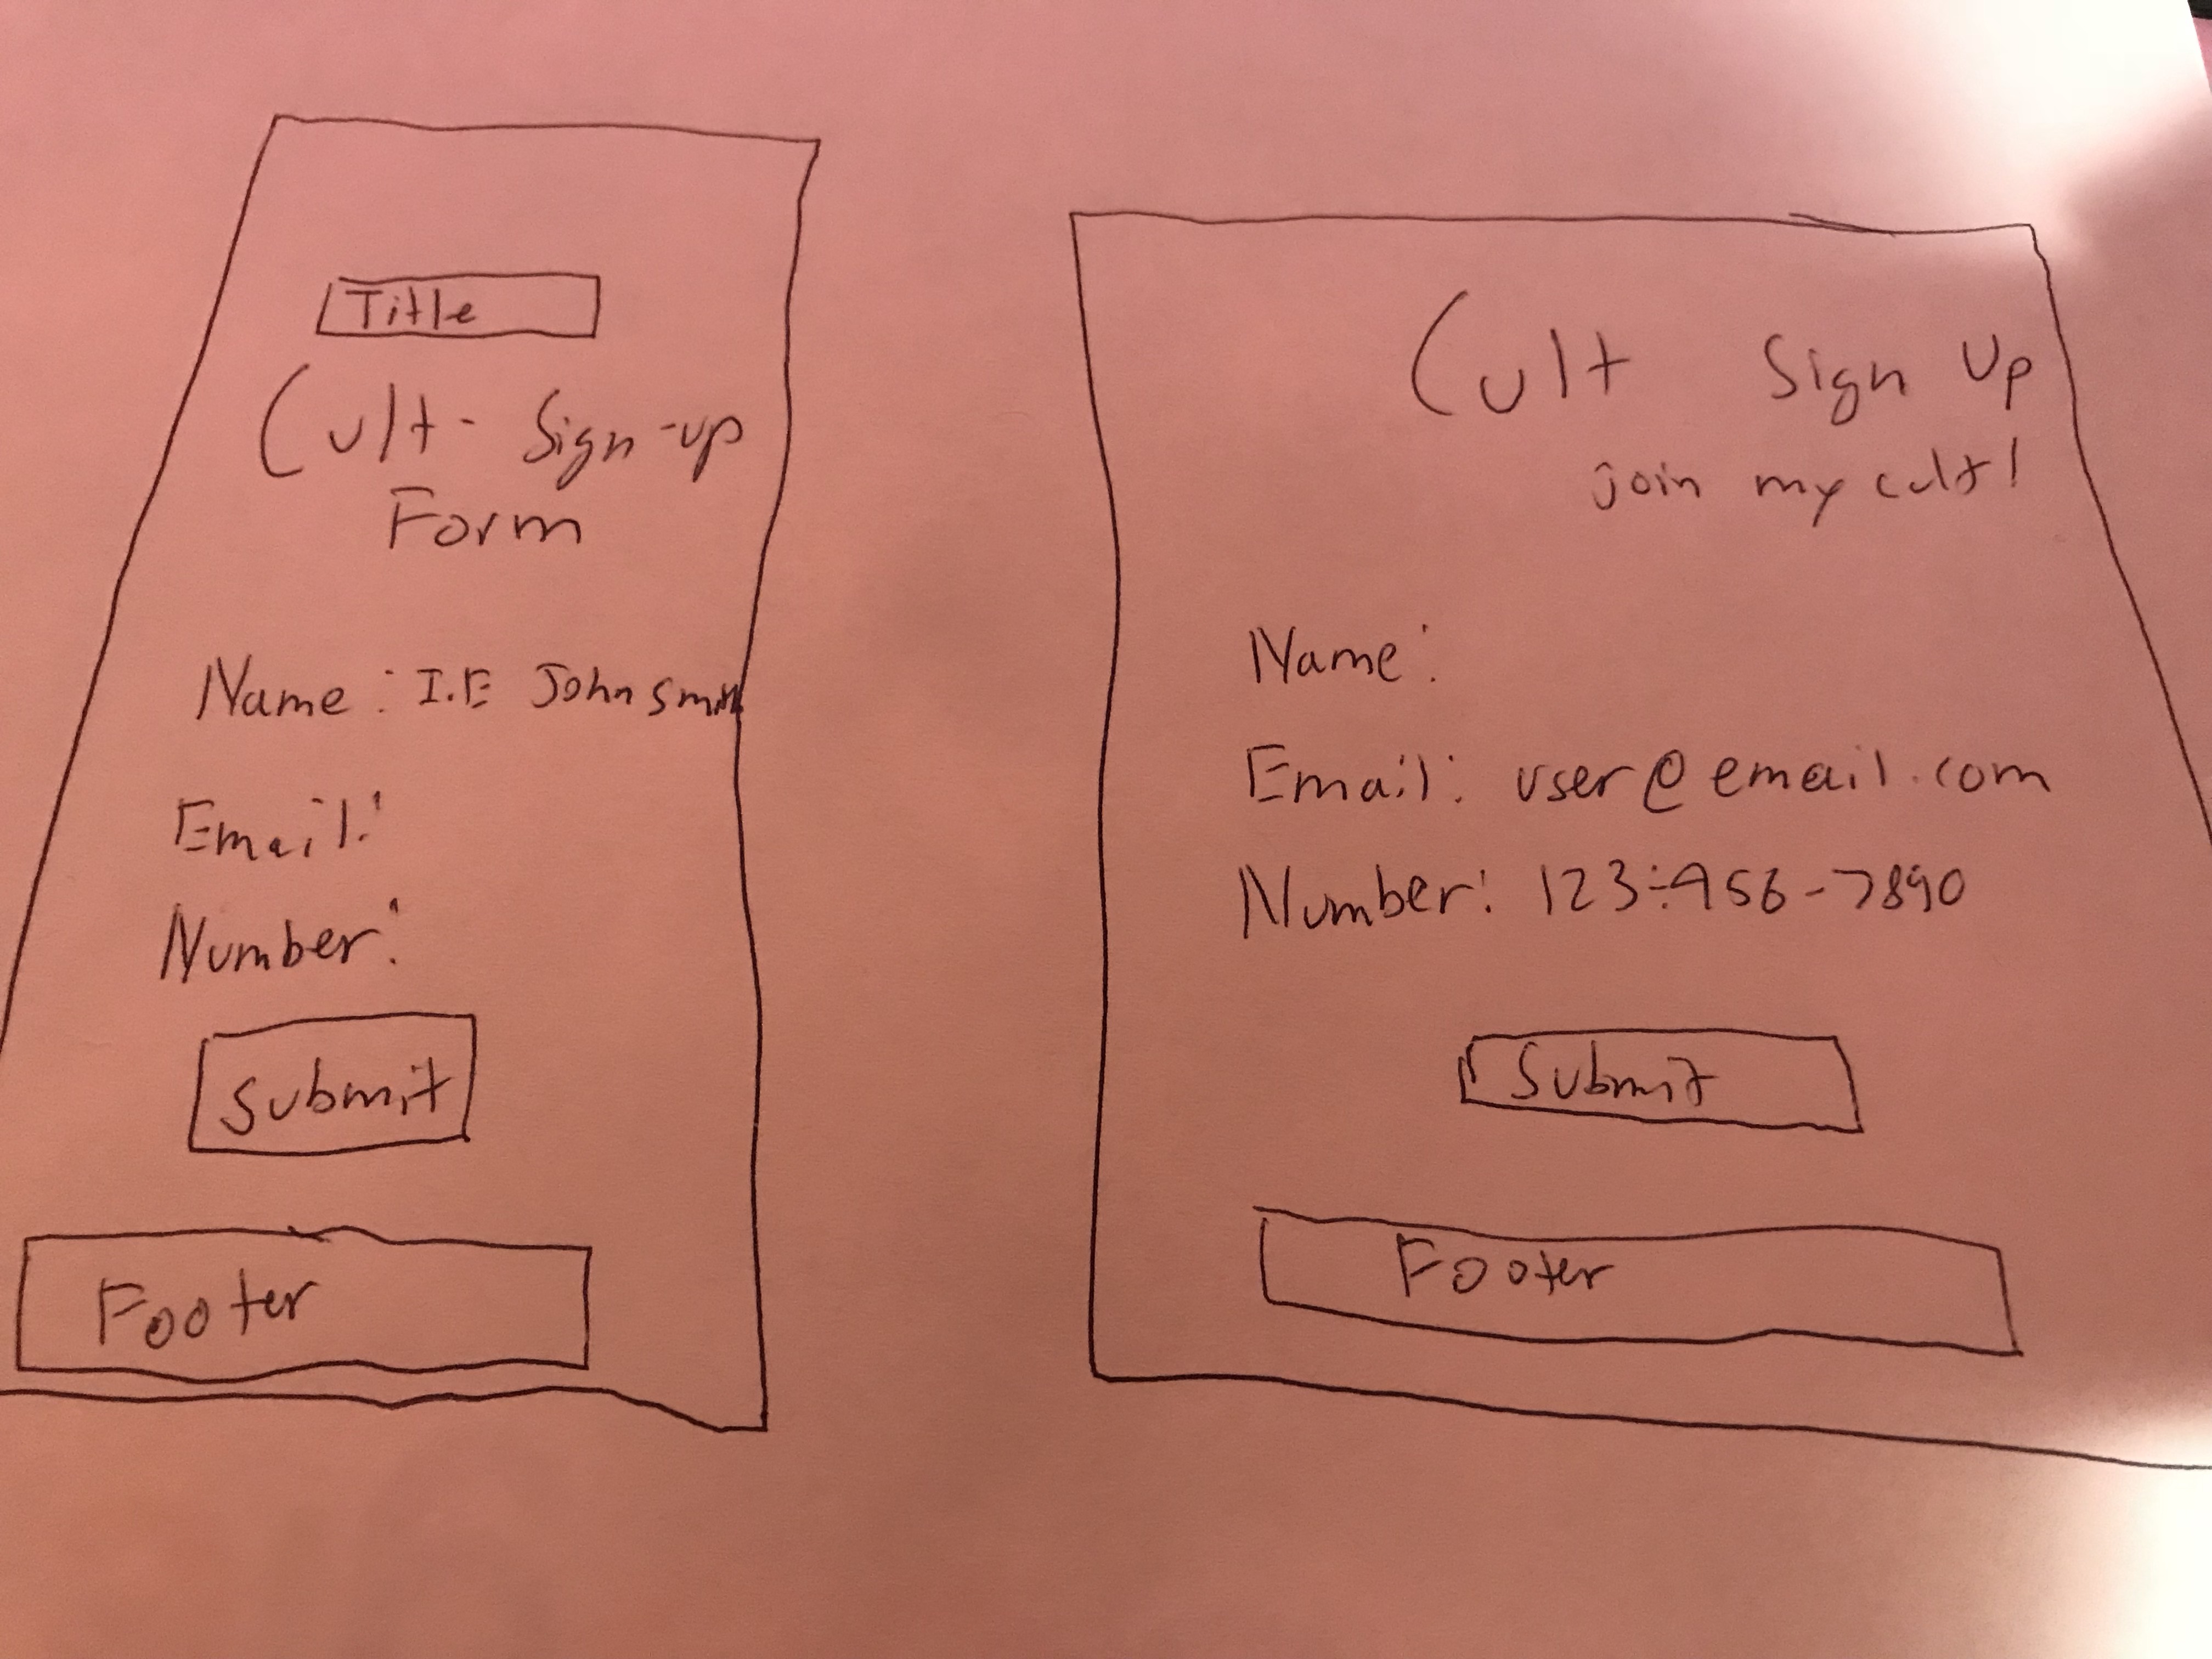 Title
Cult - Sign-up
Form
Name: I.E John Smith
Email:
Number:
Submit
Footer
Cult Sign Up
Join my cult!
Name:
Email: user@email.com
Number: 123-456-7890
Submit
Footer